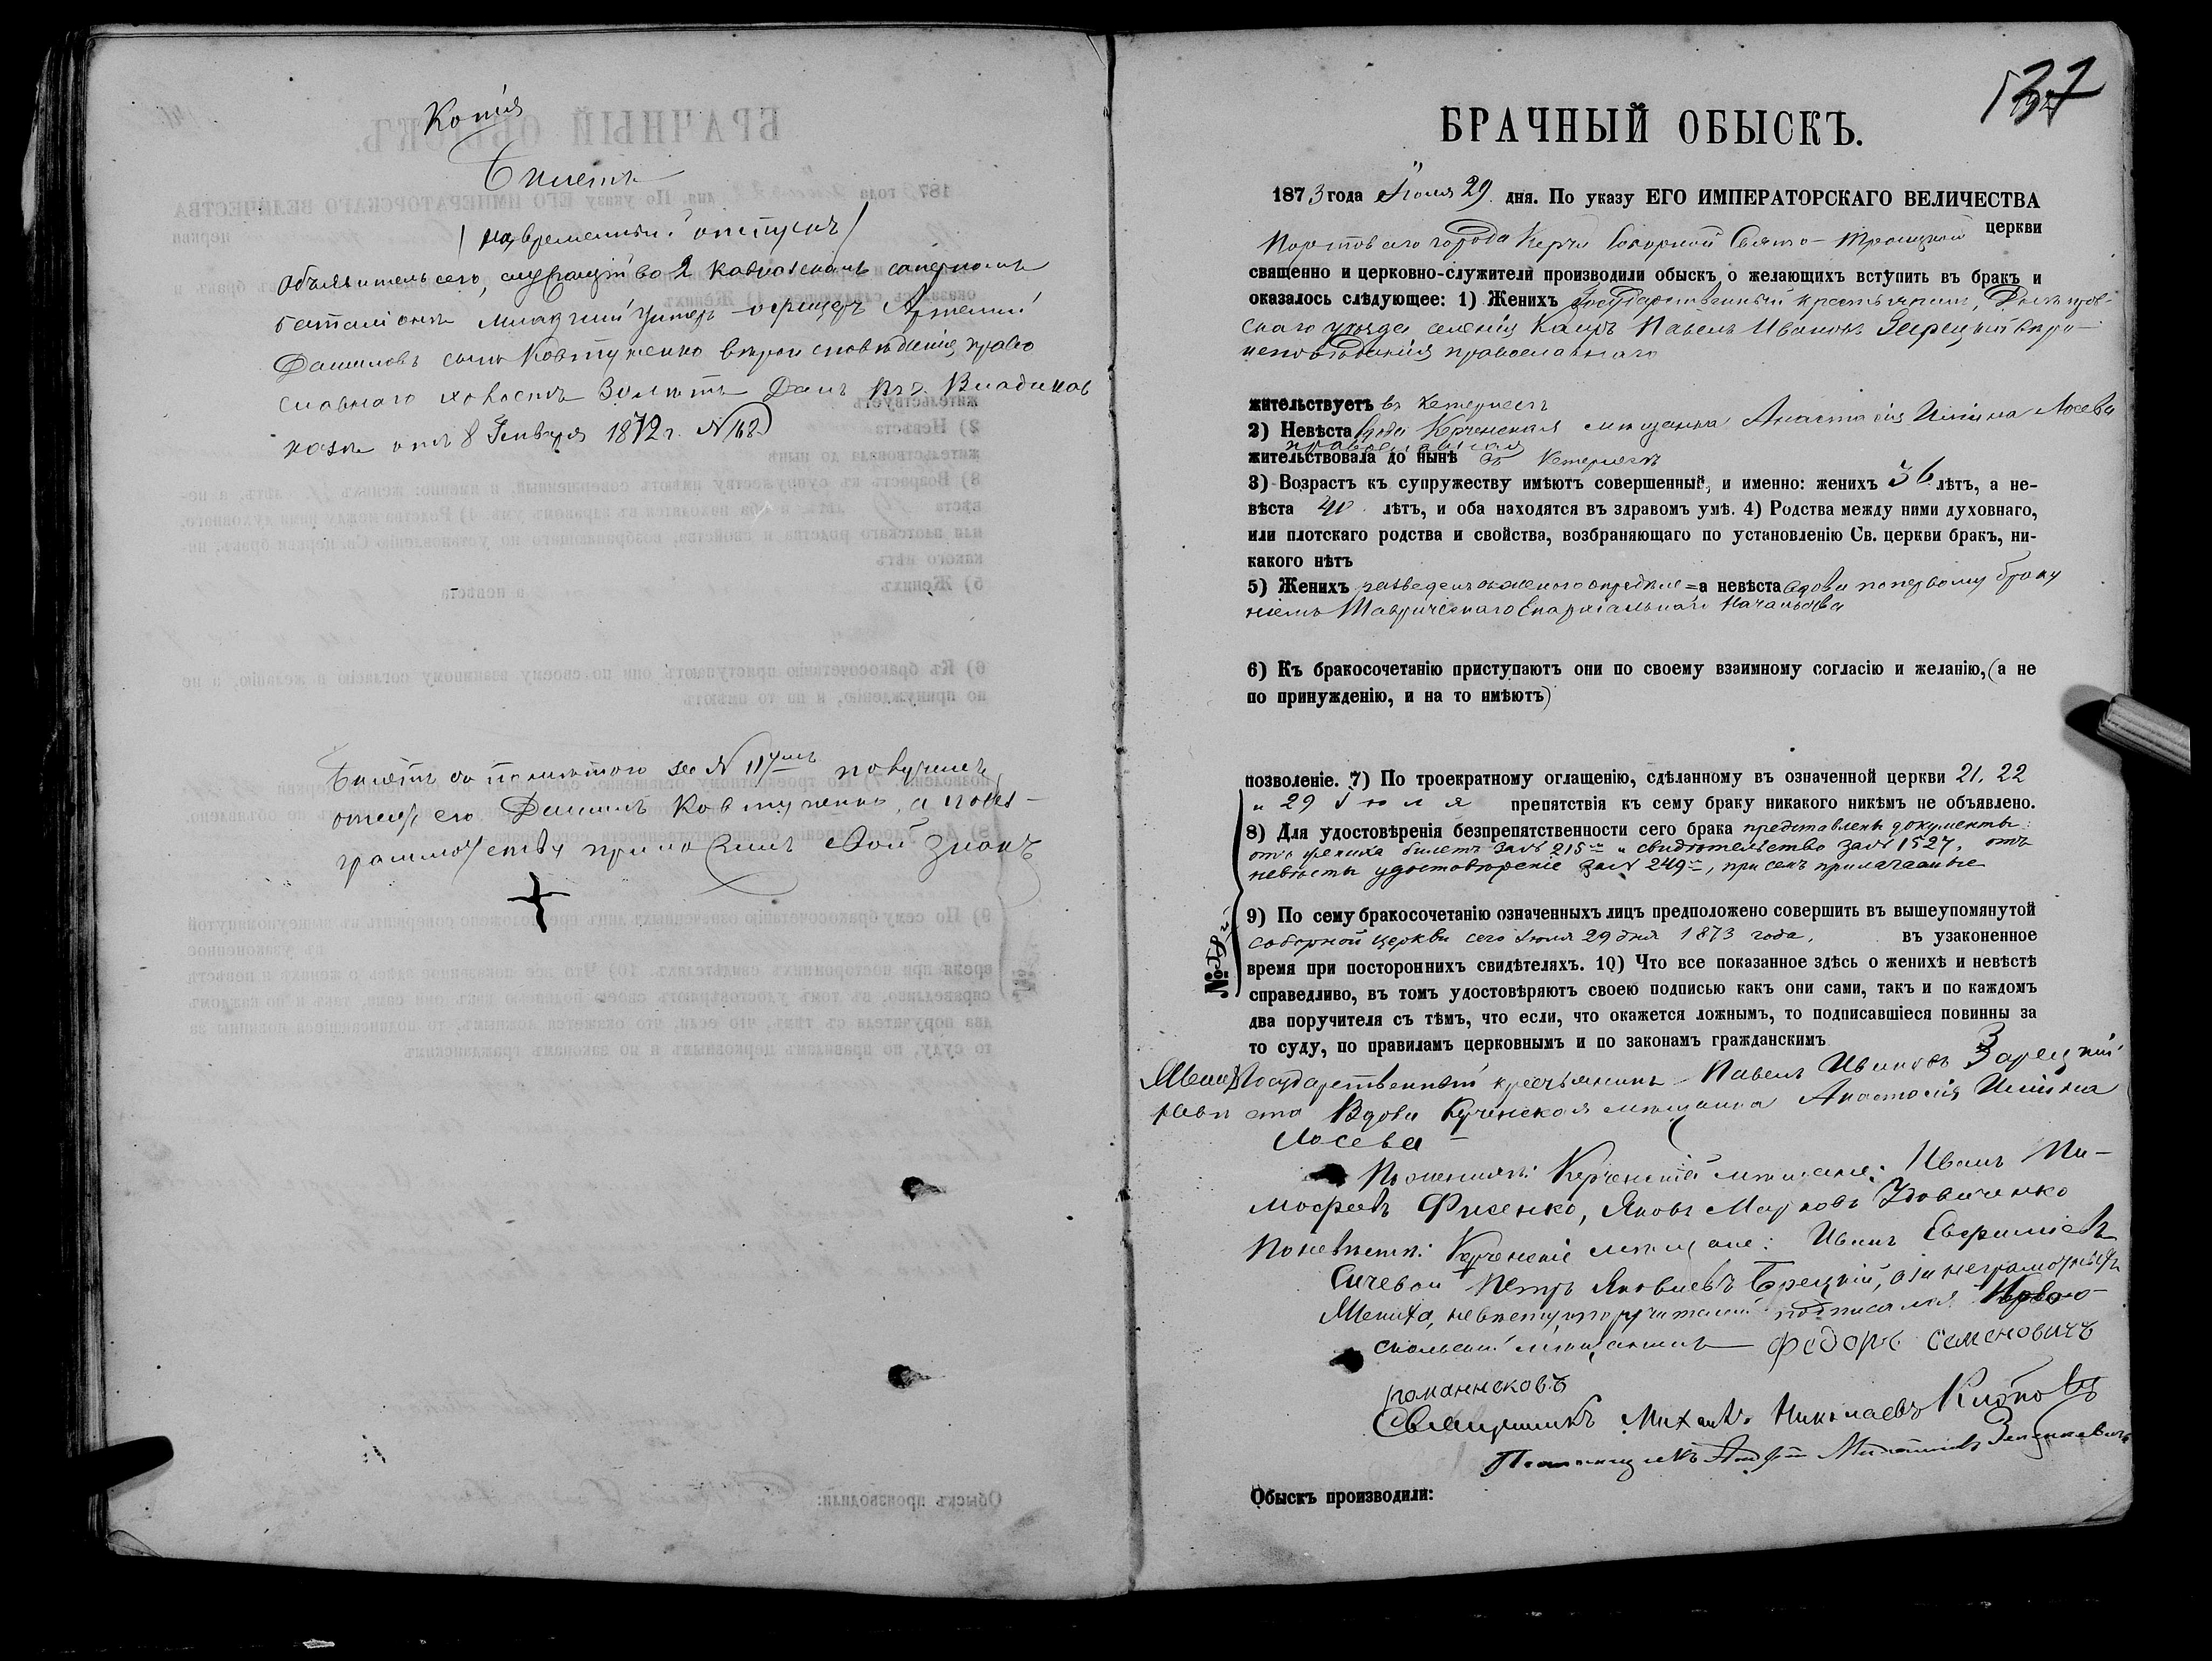 Копія
Билетъ
(на временный отпускъ)
Объявитель сего, служащій во 2 Кавказскомъ саперномъ
баталіонѣ младшій Унтеръ-офицеръ Артемій
Даниловъ сынъ Ковтуненко вѣроисповѣданія право
славнаго холостъ Данъ въ г. Владикав
казѣ отъ 8 Января 1872 г. №
Билетъ за № получилъ
отецъ его Даніилъ Ковтуненко, а по без-
грамотству приложилъ свой знакъ
+
137
БРАЧНЫЙ ОБЫСКЪ.
1873 года Іюля 29 дня. По указу ЕГО ИМПЕРАТОРСКАГО ВЕЛИЧЕСТВА
Портоваго города Керчи Соборной Свято-Троицкой церкви
священно и церковно-служители производили обыскъ о желающихъ вступить въ бракъ и
оказалось слѣдующее: 1) Женихъ Государственный крестьянинъ, Днѣпров-
скаго уѣзда селенія Каиръ Павелъ Ивановъ Зарецкій вѣро-
исповѣданія православнаго
жительствуетъ въ
2) Невѣста Вдова Керченская мѣщанка Анастасія Ильина Лосева
православная
жительствовала до нынѣ въ
3) Возрастъ къ супружеству имѣютъ совершенный, и именно: женихъ 36 лѣтъ, а не-
вѣста 40 лѣтъ, и оба находятся въ здравомъ умѣ. 4) Родства между ними духовнаго,
или плотскаго родства и свойства, возбраняющаго по установленію Св. церкви бракъ, ни-
какого нѣтъ
5) Женихъ разведенъ съ женою опредѣле= а невѣста вдова по первому браку
ніемъ Таврическаго Епархіальнаго Начальства
6) Къ бракосочетанію приступаютъ они по своему взаимному согласію и желанію, (а не
по принужденію, и на то имѣютъ)
позволеніе. 7) По троекратному оглашенію, сдѣланному въ означенной церкви 21, 22
и 29 Іюля препятствія къ сему браку никакого никѣмъ не объявлено.
8) Для удостовѣренія безпрепятственности сего брака представлены документы:
отъ жениха билетъ за № 215 и свидѣтельство за № 1527, отъ
невѣсты удостовѣреніе за № 249, при семъ прилагаемые
9) По сему бракосочетанію означенныхъ лицъ предположено совершить въ вышеупомянутой
соборной церкви сего Іюля 29 дня 1873 года. въ узаконенное
время при постороннихъ свидѣтеляхъ. 10) Что все показанное здѣсь о женихѣ и невѣстѣ
справедливо, въ томъ удостовѣряютъ своею подписью какъ они сами, такъ и по каждомъ
два поручителя съ тѣмъ, что если, что окажется ложнымъ, то подписавшіеся повинны за
то суду, по правиламъ церковнымъ и по законамъ гражданскимъ
Женихъ Государственный крестьянинъ Павелъ Ивановъ Зарецкій
невѣста Вдова Керченская мѣщанка Анастасія Ильина
Лосева
По женихѣ: Керченскій мѣщане: Иванъ Ти-
мофеевъ Фисенко, Яковъ Марковъ Удовиченко
По невѣстѣ: Керченскіе мѣщане: Иванъ Евфиміевъ
Сичевой Петръ Яковлевъ Брецкій, а за неграмотныхъ
Жениха, невѣсту, поручителей подписался
мѣщанинъ Федоръ Семеновичъ
романнсковъ
Священникъ Михаилъ Николаевъ
Обыскъ производили: